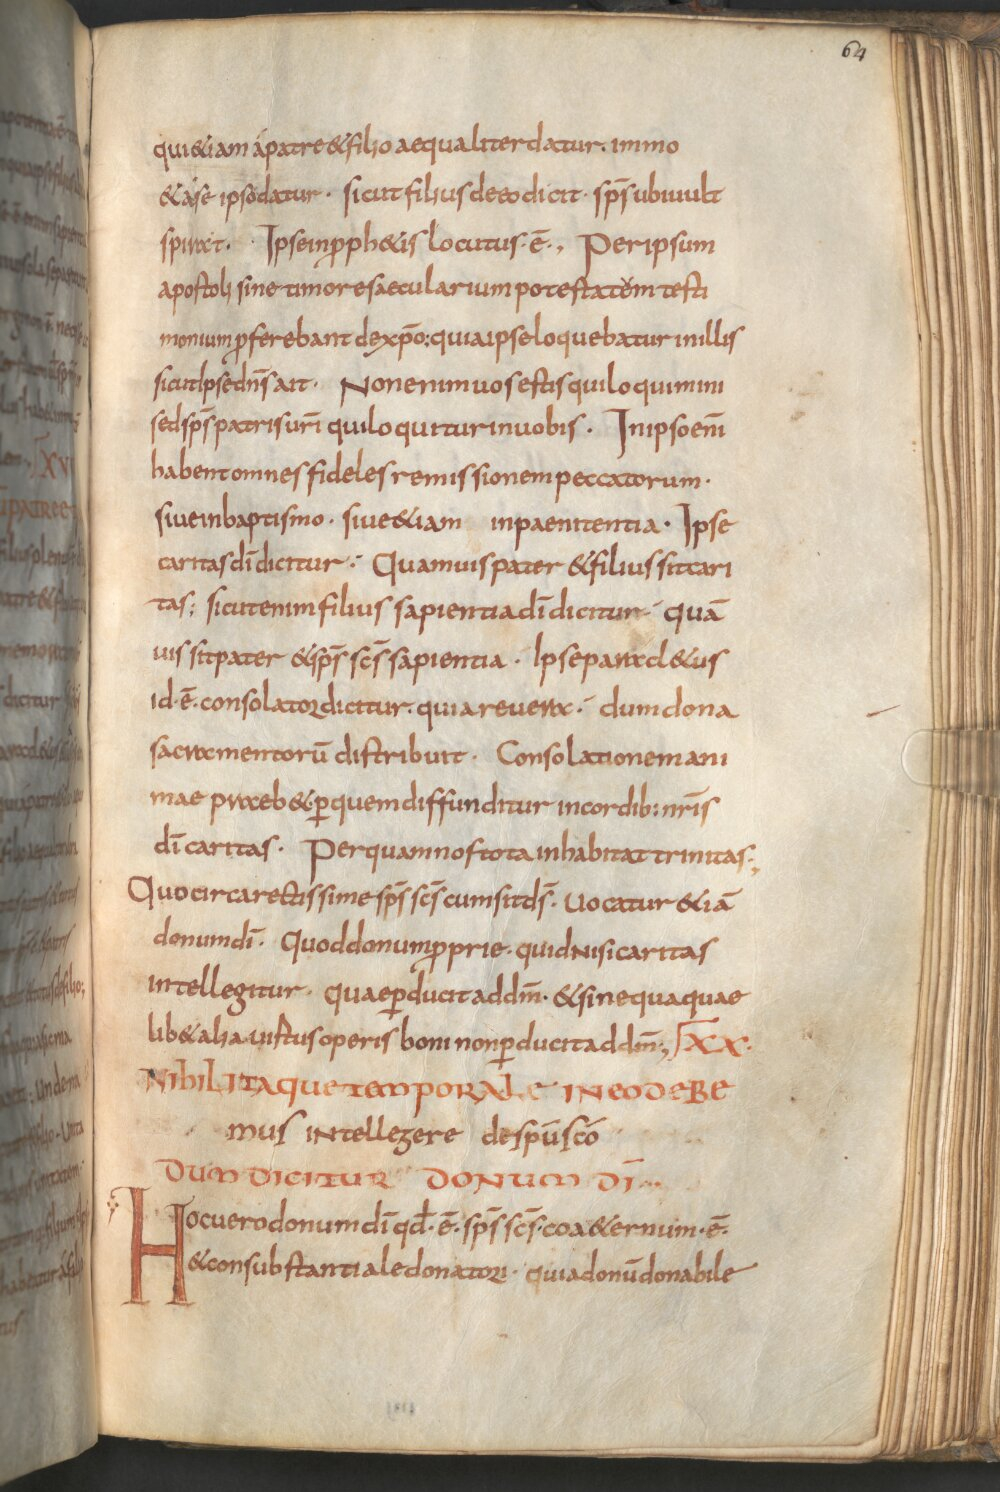 64
qui &iam a patre & filio aequaliter datur. immo
& a se ipso datur · sicut filius de eo dicit · sp̄s ubi uult
spirat · Ipse in ꝓph&is locutus · ē ·, Per ipsum
apostoli sine timore saecularium potestatem testi
monium ꝓferebant de xp̄o: quia ipse loquebatur in illis
sicut Ipse dn̄s ait · Non enim uos estis qui loquimini
sed sp̄s patris ur̄i qui loquitur in uobis · In ipso eni̅
habent omnes fideles remissionem peccatorum ·
siue in baptismo · siue &iam in paenitentia · Ipse
caritas dī dicitur · Quamuis pater & filius sit cari
tas; sicut enim filius sapientia dī dicitur · quā
uis sit pater & sp̄s sc̄s sapientia · Ipse paracl&us
id · ē · consolator dicitur · quia reuera · dum dona
sacramentorū distribuit · Consolationem ani
mae praeb& ꝑ quem diffunditur in cordib: nr̄is
dī caritas · Per quam nos tota inhabitat trinitas ·,
Quocirca rectissime sp̄s sc̄s cum sit ds̄ · Uocatur &iā
donum dī · Quod donum ꝓprie · quid nisi caritas
intellegitur · quae ꝑducit ad dm̄ · & sine qua quae
lib& alia uirtus operis boni non ꝑducit ad dm̄ ·, XX ·
NIhIL ITAque temporALe IN eo deBe
mus intellegere de spū scō
Dum DICITUR DONUM DĪ ···
Hoc uero donum dī qd̄ · ē · sp̄s sc̄s · coa&ernum · ē ·
& consubstantiale donatori · quia donū donabile